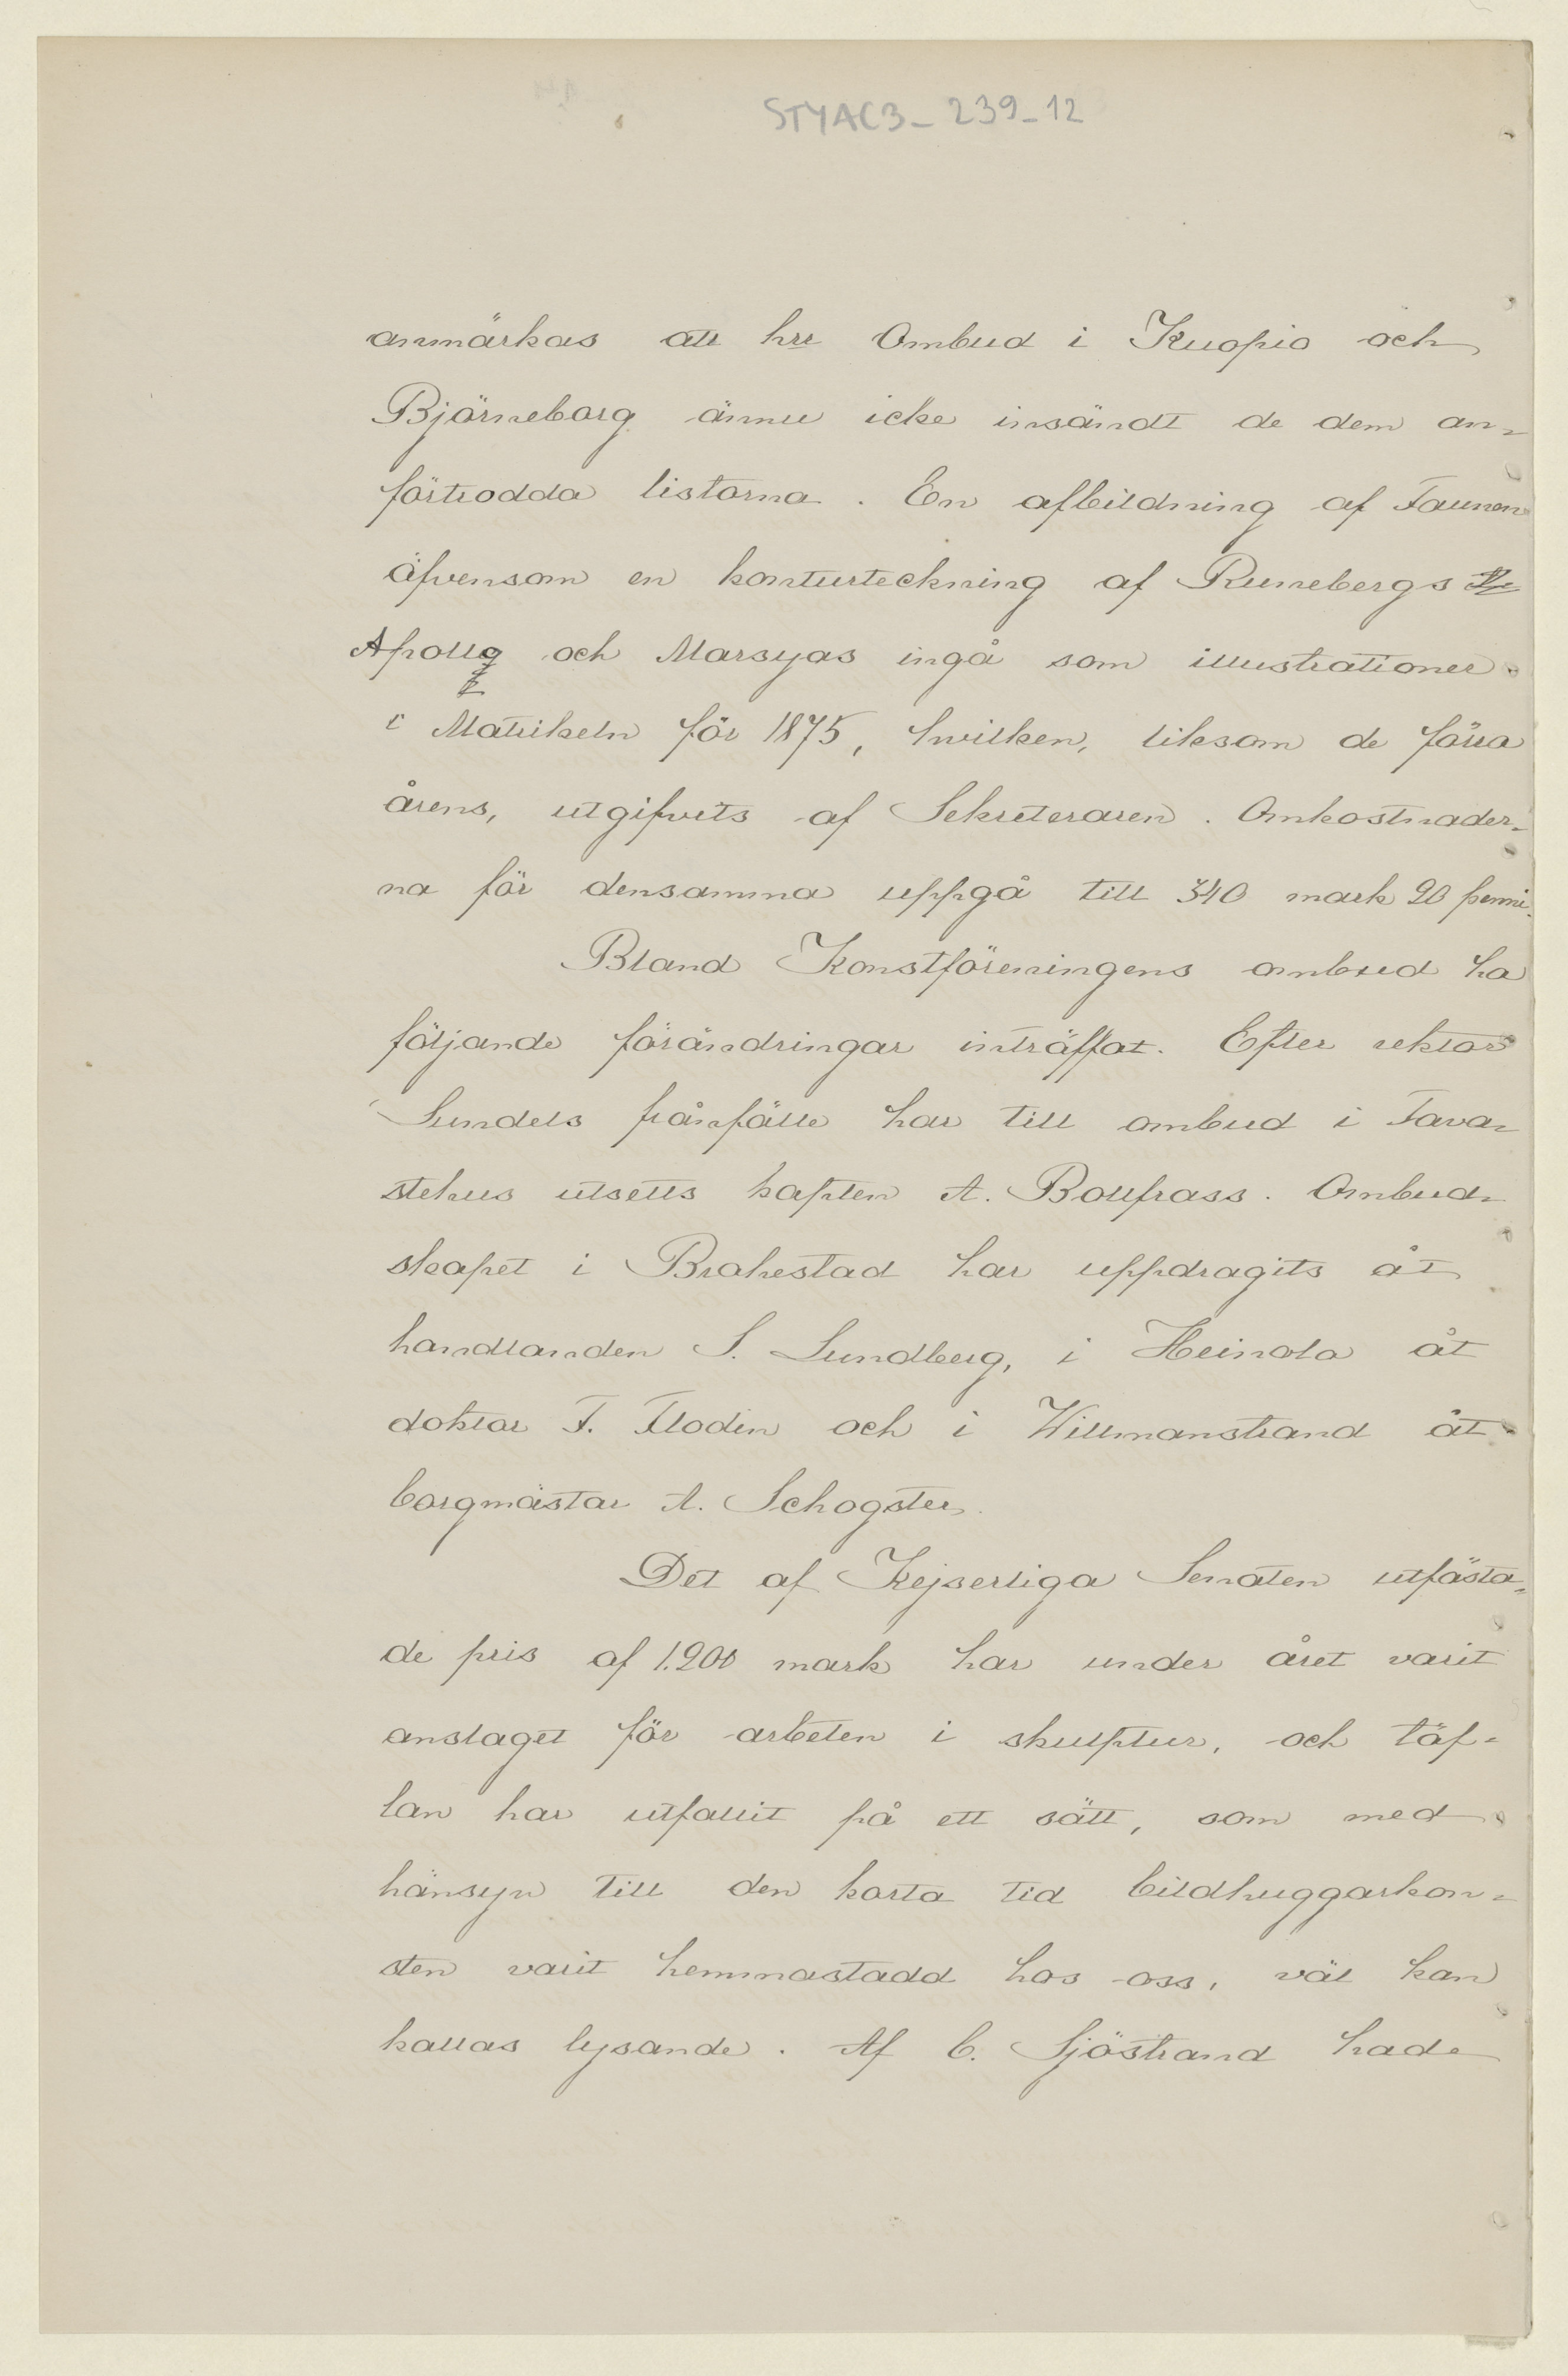 STYAC3_239_12
anmärkas att hrr Ombud i Kuopio och
Björneborg ännu icke insändt de dem an-
förtrodda listorna. En afbildning af Faunen
äfvensom en konturteckning af Runebergs
Apollo och Marsyas ingå som illustrationer
i Matrikeln för 1875, hvilken, liksom de förra
årens, utgifvits af Sekreteraren. Omkostnader-
na för densamma uppgå till 340 mark 20 penni.
Bland Konstföreningens ombud ha
följande förändringar inträffat. Efter rektor
Sundels frånfälle har till ombud i Tava-
stehus utsetts kapten A. Boufrass. Ombud-
skapet i Brahestad har uppdragits åt
handlanden S. Sundberg, i Heinola åt
doktor F. Flodin och i Willmanstrand åt
borgmästar A. Schogster.
Det af Kejserliga Senaten utfästa-
de pris af 1.200 mark har under året varit
anslaget för arbeten i skulptur, och täf-
lan har utfallit på ett sätt, som med
hänsyn till den korta tid bildhuggarkon-
sten varit hemmastadd hos oss, väl kan
kallas lysande. Af C. Sjöstrand hade